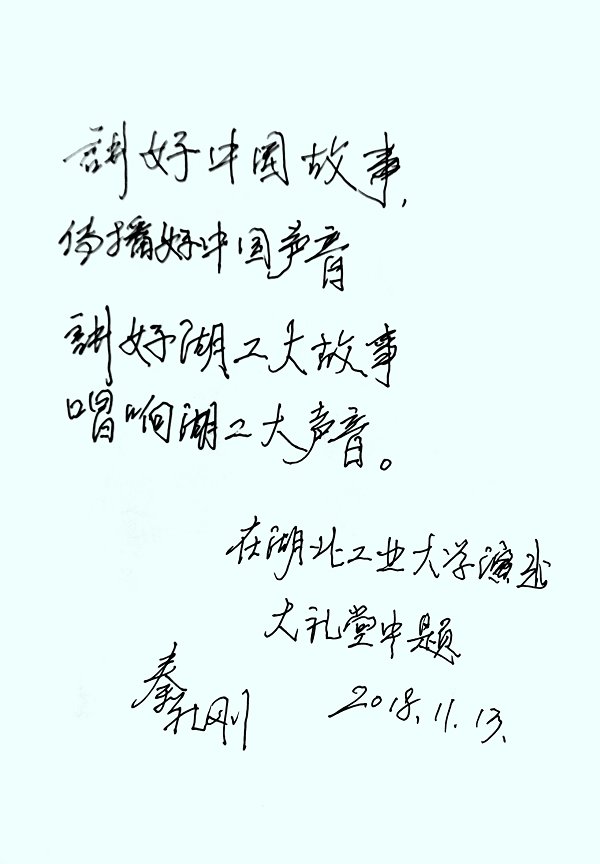 讲好中国故事,
传播好中国声音
讲好湖工大故事
唱响湖工大声音。
在湖北工业大学演武
大礼堂中题
秦社刚
2018.11.13.